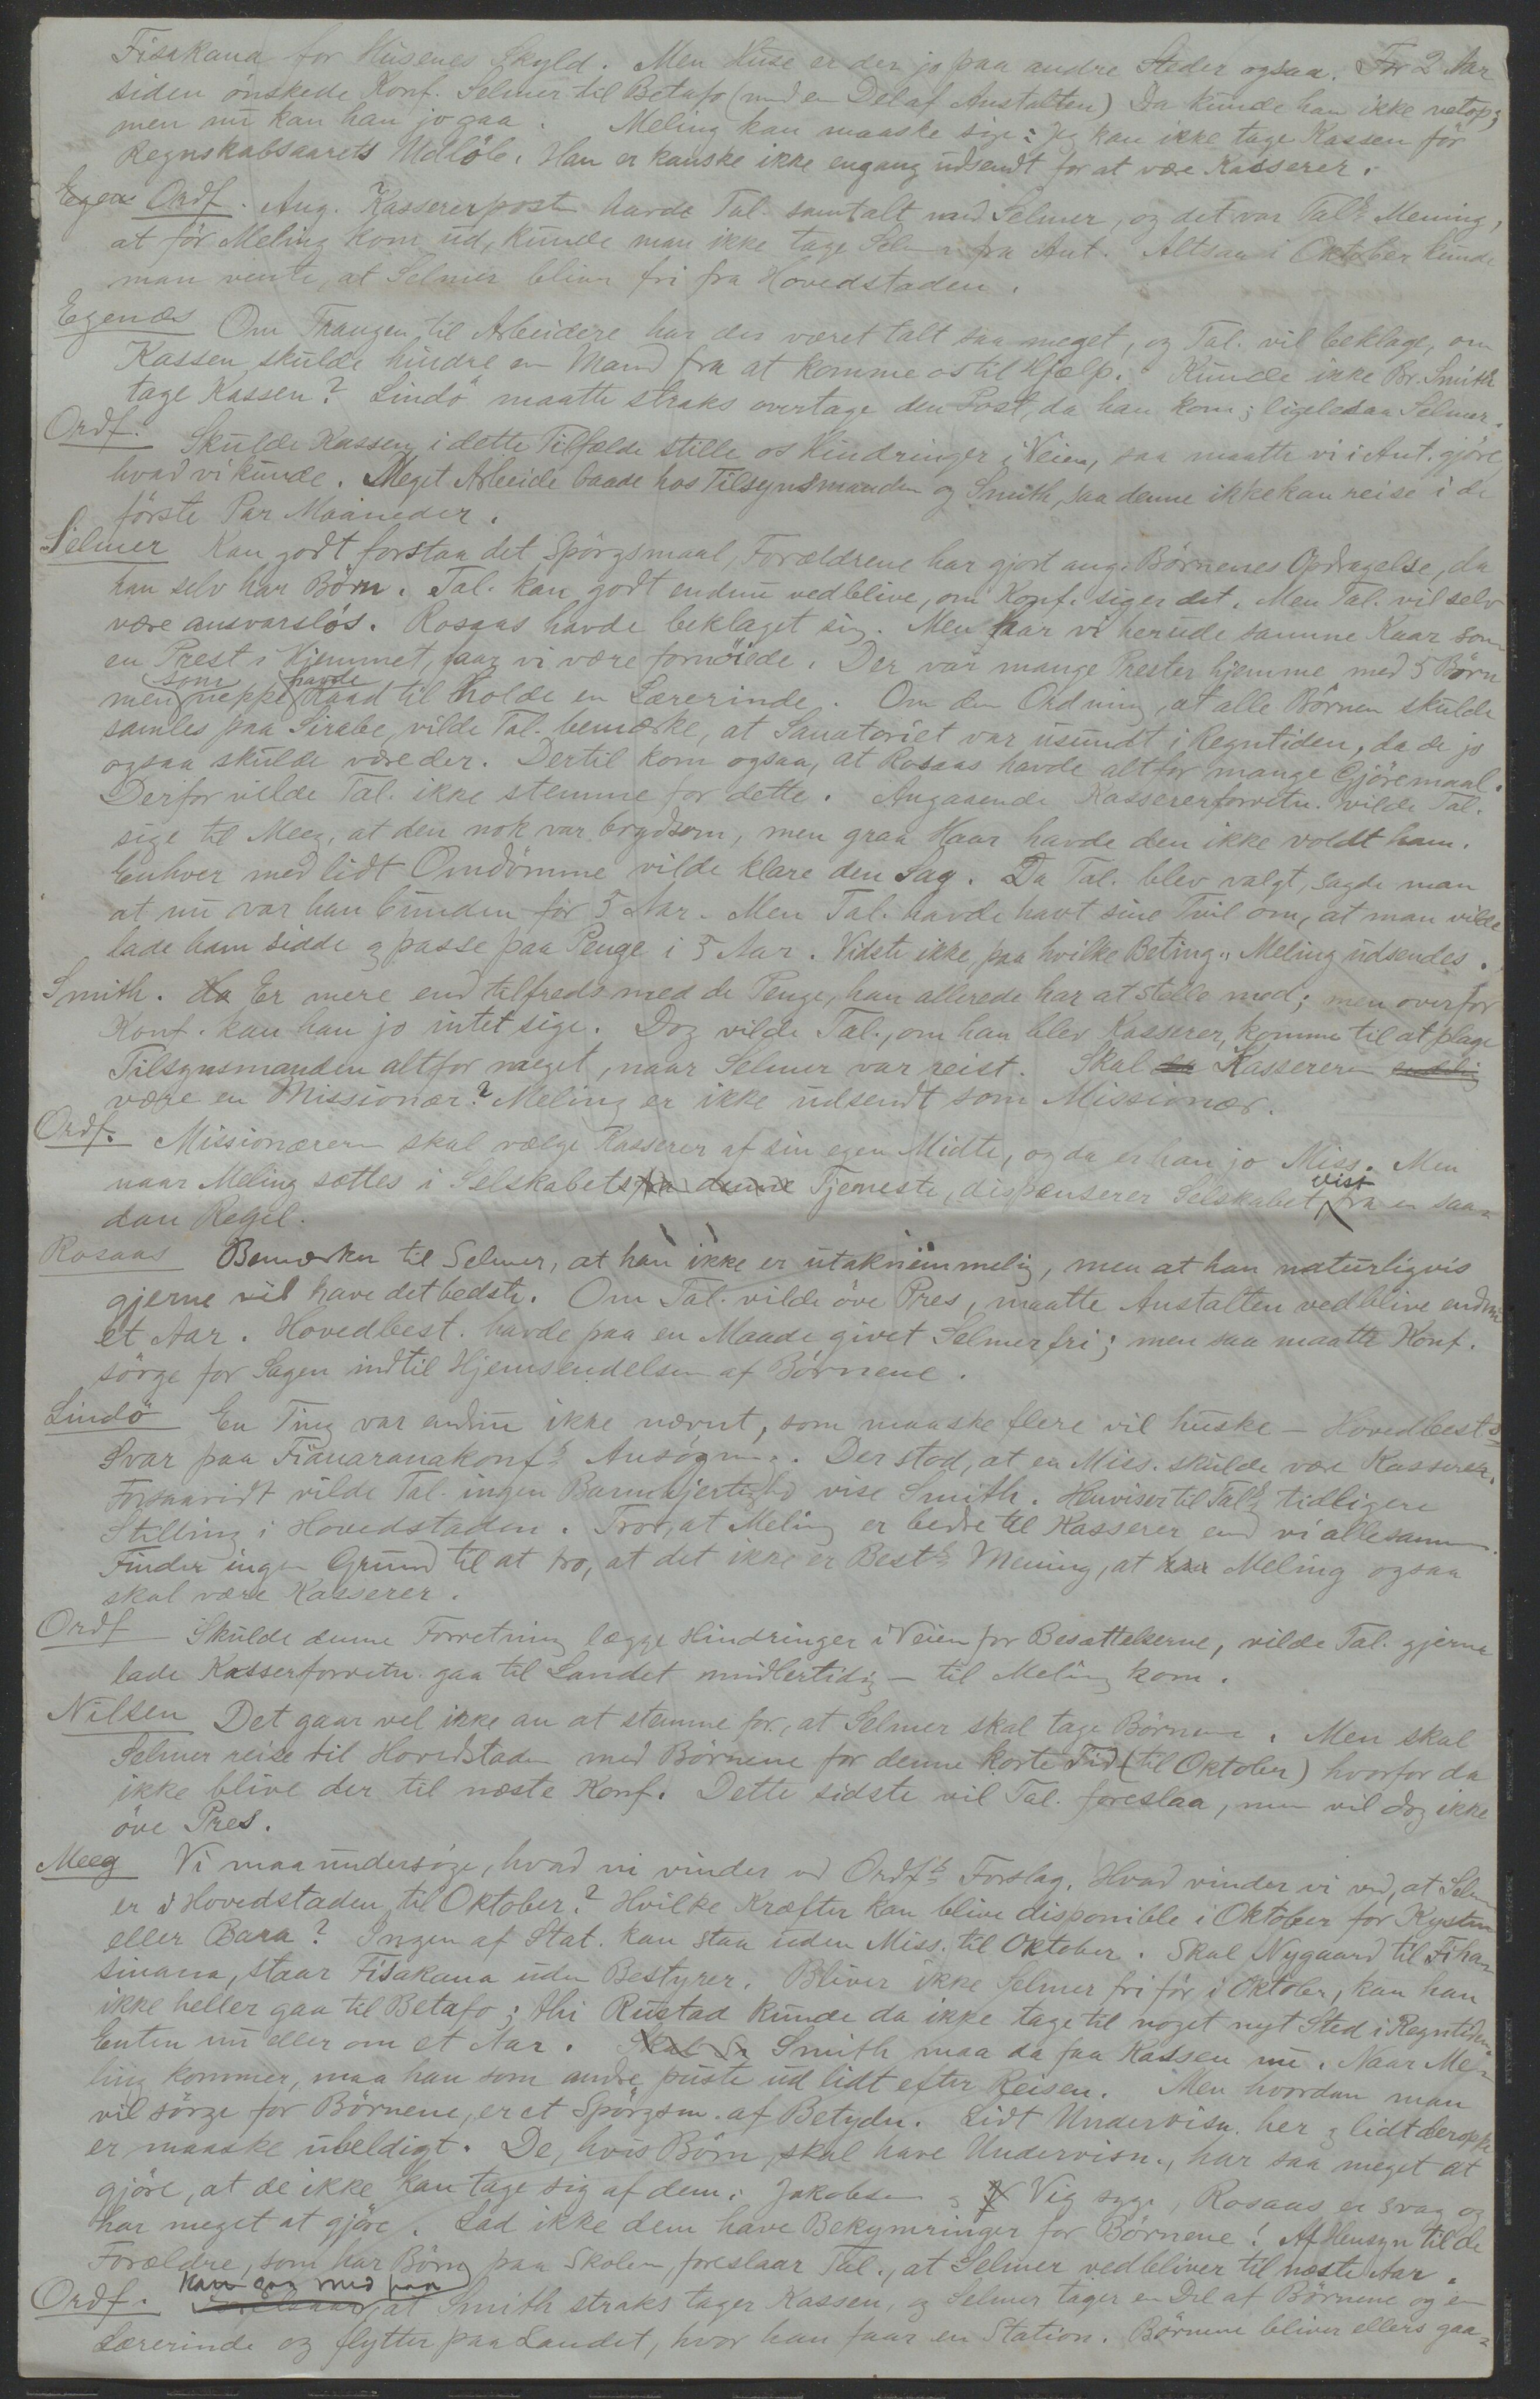 Fisakana for Husenes Skyld. Men Huse er der jo paa andre Steder ogsaa. For 2 Aar
siden önskede Konf. Selmer til Betafo (med en Del af Anstalten) Da kunde han ikke netop;
men nu kan han jo gaa. Meling kan maaske sige: Jeg kan ikke tage Kassen för
Regnskabsaarets Udlöb. Han er kanske ikke engang udsendt for at være Kasserer.
Egenæs Ordf. Ang. Kassererposten havde Tal. samtalt med Selmer, og det var Tal.s Mening,
at för Meling kom ud, kunde man ikke tage Selmer fra Ant. Altsaa i Oktober kunde
man vente, at Selmer bliver fri fra Hovedstaden.
Egenæs Om Trangen til Arbeidere har der været talt saa meget, og Tal. vil beklage, om
Kassen skulde hindre en Mand fra at komme os til Hjælp. Kunde ikke Br. Smith
tage Kassen? Lindö maatte straks overtage den Post, da han kom; ligeledes Selmer.
Ordf. Skulde Kassen i dette Tilfælde stille os Hindringer i Veien, saa maatte vi i Ant. gjöre,
hvad vi kunde. Meget Arbeide baade hos Tilsynsmanden og Smith, saa denne ikke kan reise i de
förste Par Maaneder.
Selmer Kan godt forstaa det Spörgsmaal, Forældrene har gjort ang. Börnenes Opdragelse, da
han selv har Börn. Tal. kan godt endnu vedblive, om Konf. siger det. Men Tal. vil selv
være ansvarslös. Rosaas havde beklaget sig. Men faar vi herude samme Kaar som
en Prest i Hjemmet, faar vi være fornöiede. Der var mange Prester hjemme med 5 Börn
som havde
men neppe Raad til holde en Lærerinde. Om den Ordning, at alle Börnene skulde
samles paa Sirabe, vilde Tal. bemærke, at Sanatoriet var usundt i Regntiden, da de jo
ogsaa skulde være der. Dertil kom ogsaa, at Rosaas havde altfor mange Gjöremaal.
Derfor vilde Tal. ikke stemme for dette. Angaaende Kassererforretn. vilde Tal.
sige til Meeg, at den nok var brydsom, men graa Haar havde den ikke voldt ham.
Enhver med lidt Omdömme vilde klare den Sag. Da Tal. blev valgt, sagde man
at nu var han bunden for 5 Aar. Men Tal. havde havt sine Tvil om, at man vilde
lade ham sidde og passe paa Penge i 5 Aar. Vidste ikke, paa hvilke Beting. Meling udsendes.
Smith. Da Er mere end tilfreds med de Penge, han allerede har at stelle med; men overfor
Konf. kan han jo intet sige. Dog vilde Tal., om han blev Kasserer, komme til at plage
Tilsynsmanden altfor meget, naar Selmer var reist. Skal da Kassereren endelig
være en Missionær? Meling er ikke udsendt som Missionær.
Ordf. Missionærerne skal vælge Kasserer af sin egen Midte, og da er han jo Miss. Men
vist
naar Meling sættes i Selskabets paa denne Tjeneste, dispenserer Selskabet fra en saa-
dan Regel.
Rosaas Bemærker til Selmer, at han ikke er utaknemmelig, men at han naturligvis
gjerne vil have det bedste. Om Tal. vilde öve Pres, maatte Anstalten vedblive endnu
et Aar. Hovedbest. havde paa en Maade givet Selmer fri; men saa maatte Konf.
sörge for Sagen indtil Hjemsendelsen af Börnene.
Lindö En Ting var endnu ikke nævnt, som maaske flere vil huske – Hovedbest.s
Svar paa Fianaranakonf.s Ansögning. Der stod, at en Miss. skulde være Kasserer.
Forsaavidt vilde Tal. ingen Barmhjertighed vise Smith. Henviser til Tal.s tidligere
Stilling i Hovedstaden. Tror, at Meling er bedre til Kasserer end vi allesammen.
Finder ingen Grund til at tro, at det ikke er Best.s Mening, at han Meling ogsaa
skal være Kasserer.
Ordf Skulde denne Forretning lægge Hindringer i Veien for Besættelserne, vilde Tal. gjerne
lade Kasserforretn. gaa til Landet midlertidig – til Meling kom.
Nilsen Det gaar vel ikke an at stemme for, at Selmer skal tage Börnene. Men skal
Selmer reise til Hovedstaden med Börnene for denne korte Tid (til Oktober) hvorfor da
ikke blive der til næste Konf. Dette sidste vil Tal. foreslaa, men vil dog ikke
öve Pres.
Meeg Vi maa undersöge, hvad vi vinder ved Ordf.s Forslag. Hvad vinder vi ved, at Selmer
er i Hovedstaden til Oktober? Hvilke Kræfter kan blive disponible i Oktober for Kysten
eller Bara? Ingen af Stat. kan staa uden Miss. til Oktober. Skal Nygaard til Fiha-
sinana, staar Fisakana uden Bestyrer. Bliver ikke Selmer fri för i Oktober, kan han
ikke heller gaa til Betafo; thi Rustad kunde da ikke tage til noget nyt Sted i Regntiden.
Enten nu eller om et Aar. Skal Sm Smith maa da faa Kassen nu. Naar Me-
ling kommer, maa han som andre puste ud lidt efter Reisen. Men hvordan man
vil sörge for Börnene, er et Spörgsm. af Betydn. Lidt Undervisn. her og lidt deroppe
er maaske uheldigt. De, hvis Börn skal have Undervisn., har saa meget at
gjöre, at de ikke kan tage sig af dem. Jakobsen og Vig syge, Rosaas er svag og
har meget at gjöre. Lad ikke dem have Bekymringer for Börnene! Af Hensyn til de
Forældre, som har Börn paa Skolen, foreslaar Tal., at Selmer vedbliver til næste Aar.
Kan gaa med paa
Ordf. Foreslaar, at Smith straks tager Kassen, og Selmer tager en Del af Börnene og en
Lærerinde og flytter paa Landet, hvor han faar en Station. Börnene bliver ellers gaa-